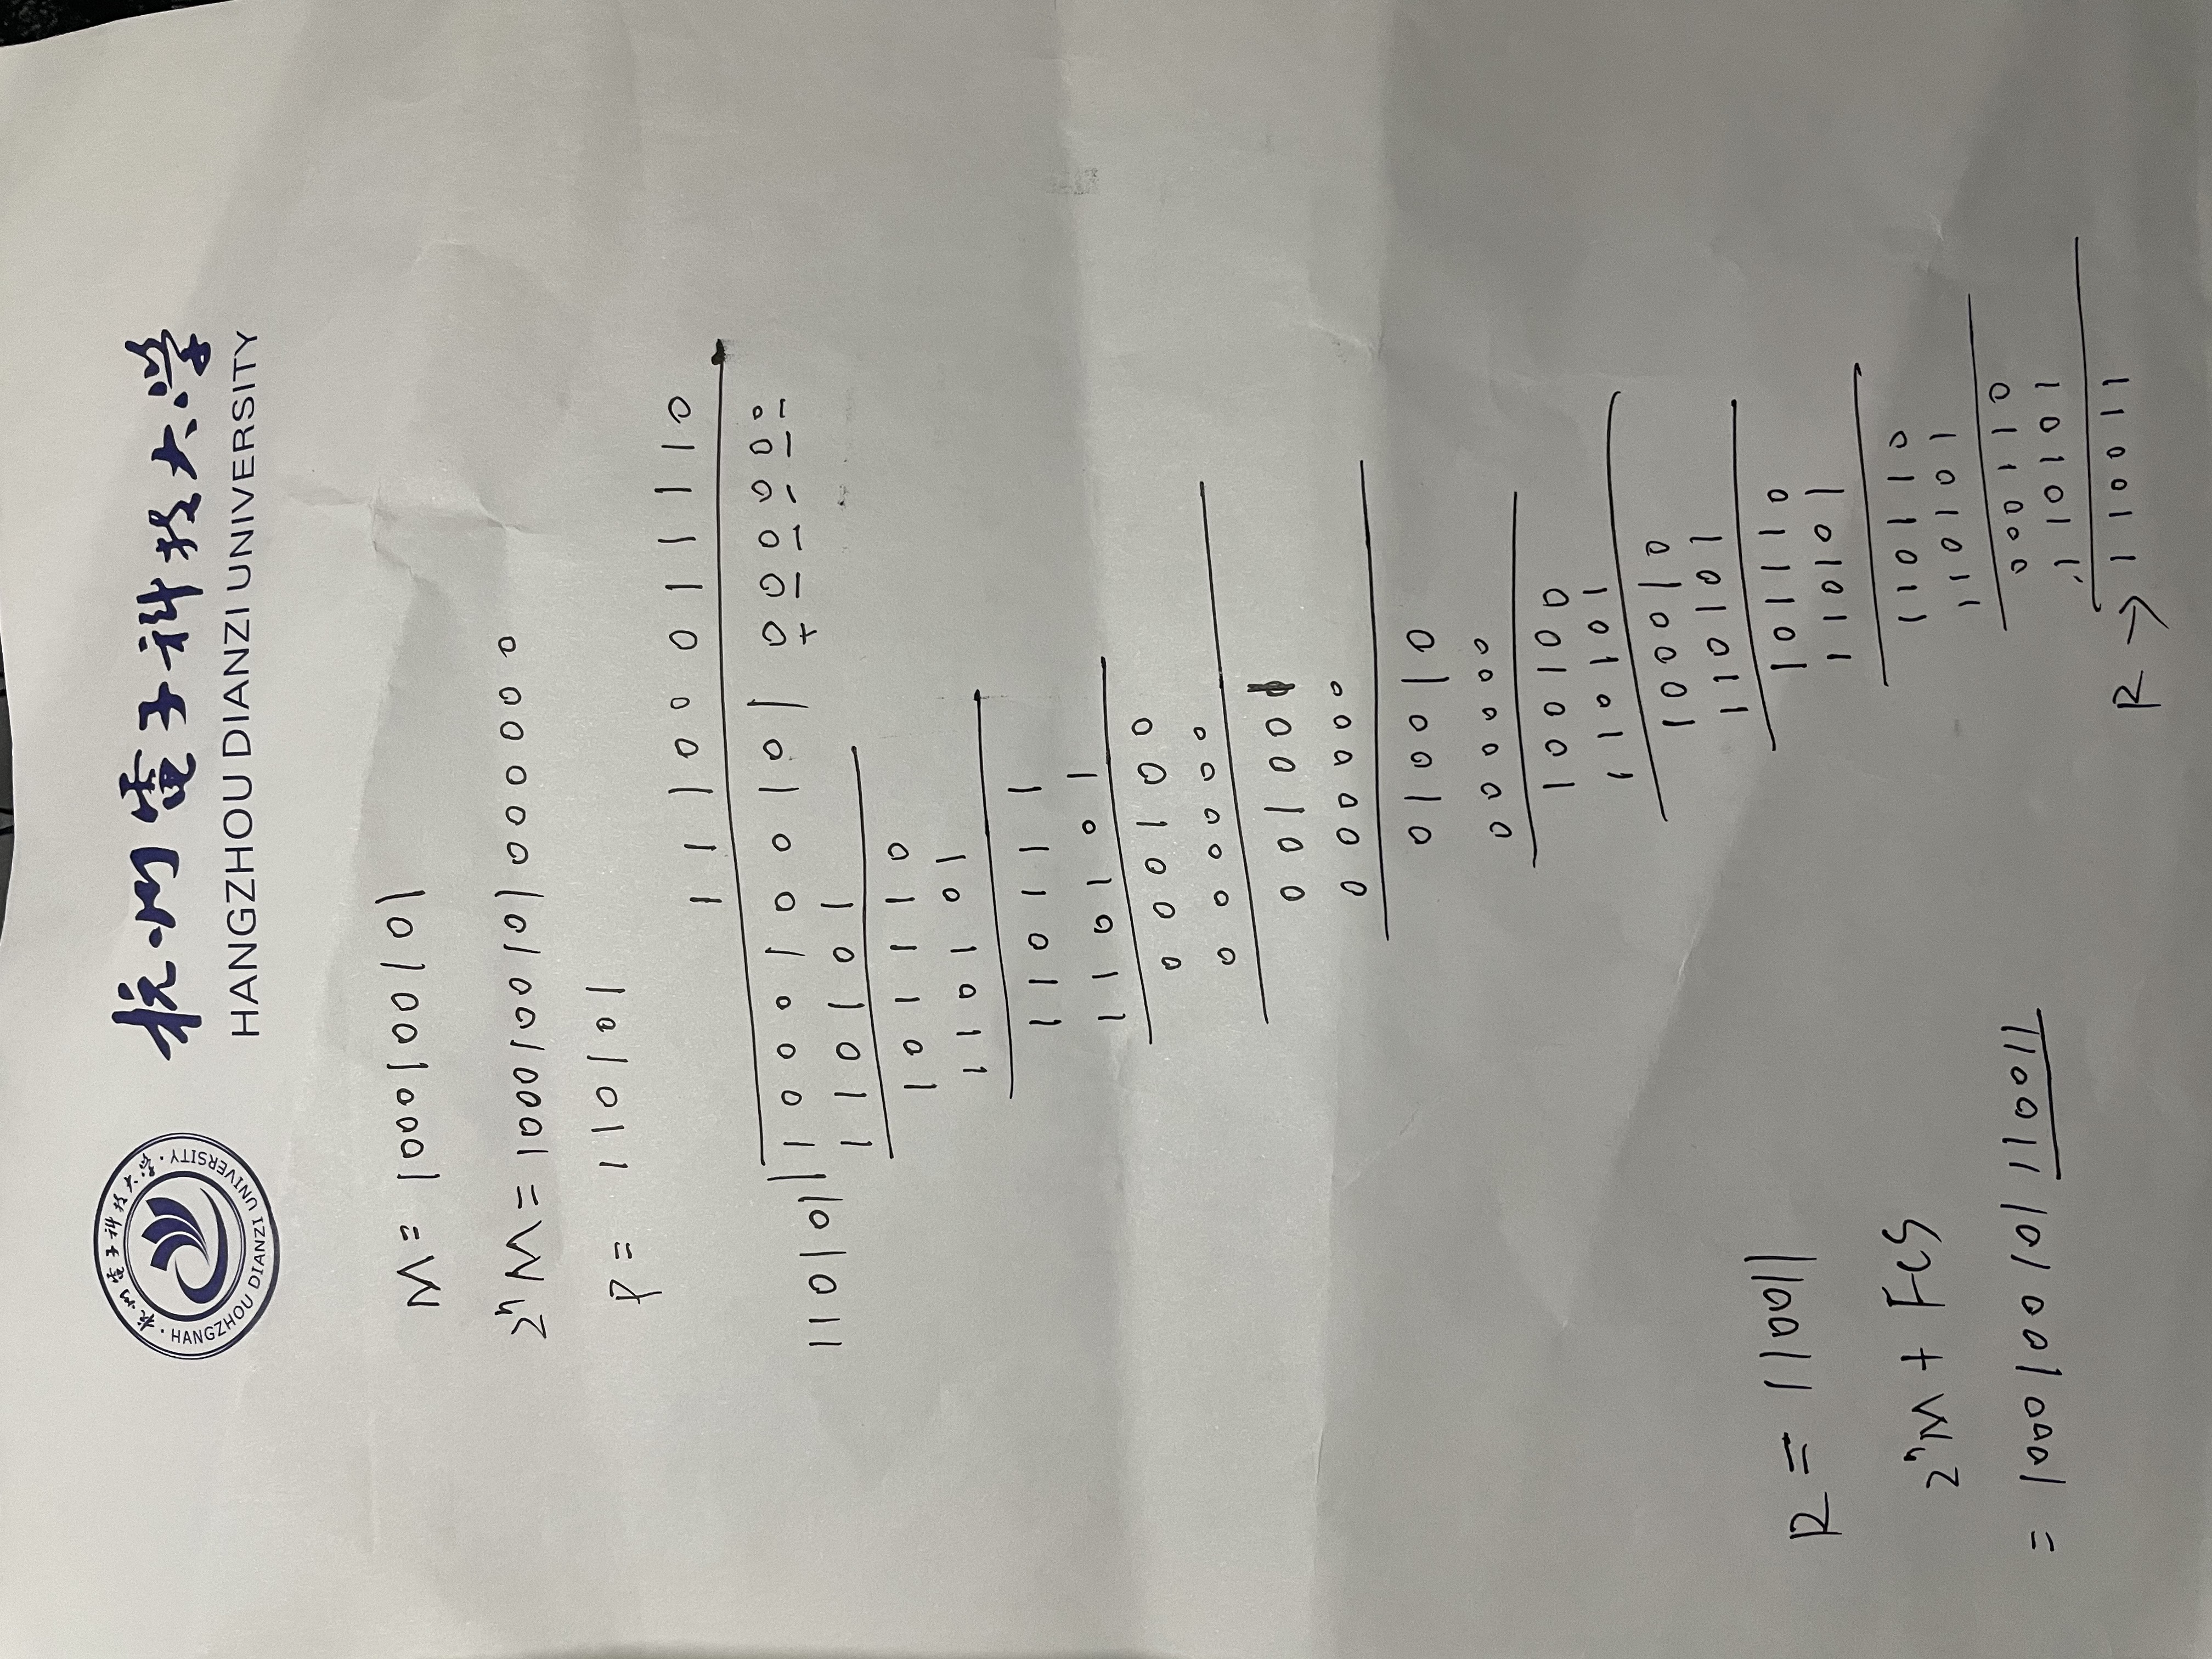 杭州電子科技大学
HANGZHOU DIANZI UNIVERSITY
杭州電子科技大学
HANGZHOU DIANZI UNIVERSITY
M = 1000100101
2ⁿM = 1000100101000000
P = 110101
11100011110
110101 1000100101 000000
110101
101110
110101
110111
110101
000100
000000
001001
000000
010010
000000
100100
110101
100010
110101
101110
110101
110110
110101
000110
110101
R → 110011
R = 110011
2ⁿM + FCS
= 1000100101110011